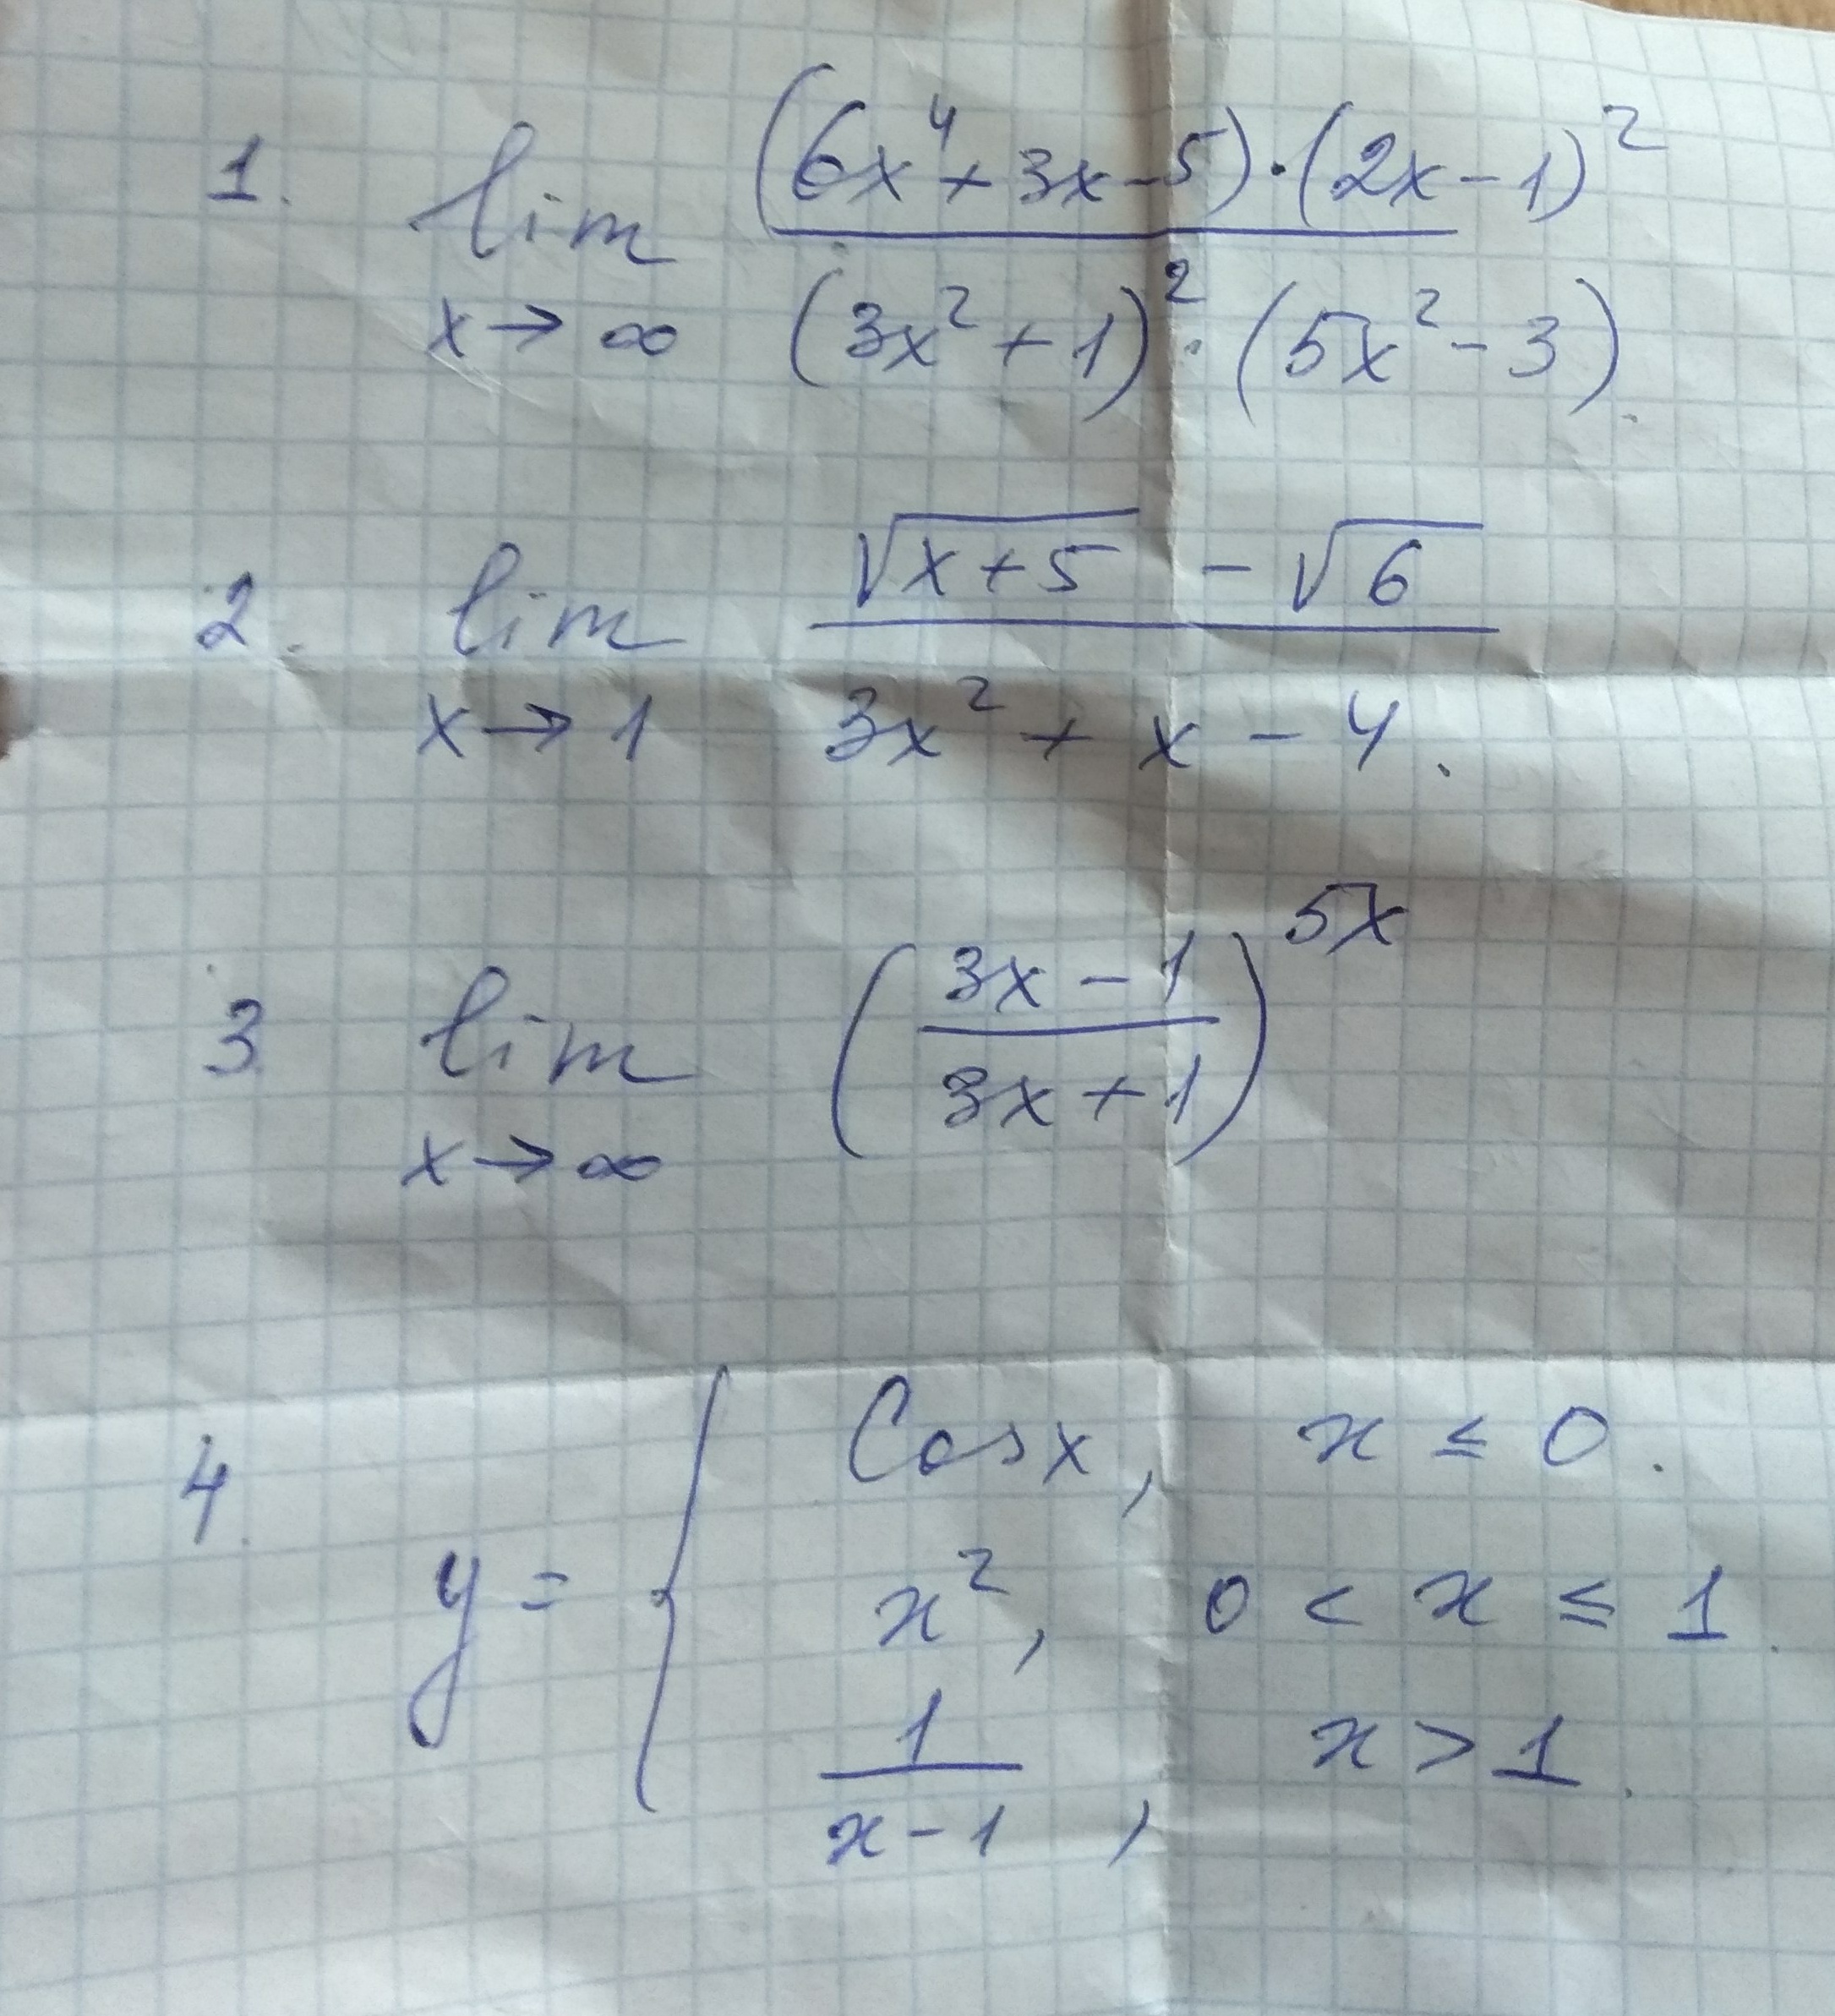 1. lim (6x⁴ + 3x - 5) · (2x - 1)²
x → ∞ (3x² + 1)² · (5x² - 3).
2. lim √(x + 5) - √6
x → 1 3x² + x - 4.
3 lim (3x - 1 / 3x + 1)^5x
x → ∞
4. Cos x, x ≤ 0.
y = { x², 0 < x ≤ 1.
1 / x - 1, x > 1.